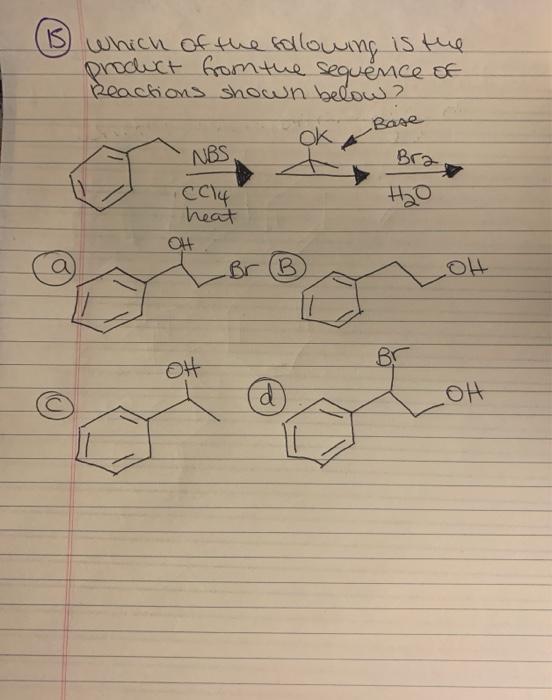 15 which of the following is the
product from the sequence of
Reactions shown below?
OK Base
NBS Br2
CCl4 H2O
heat
a OH Br B OH
c OH d Br OH